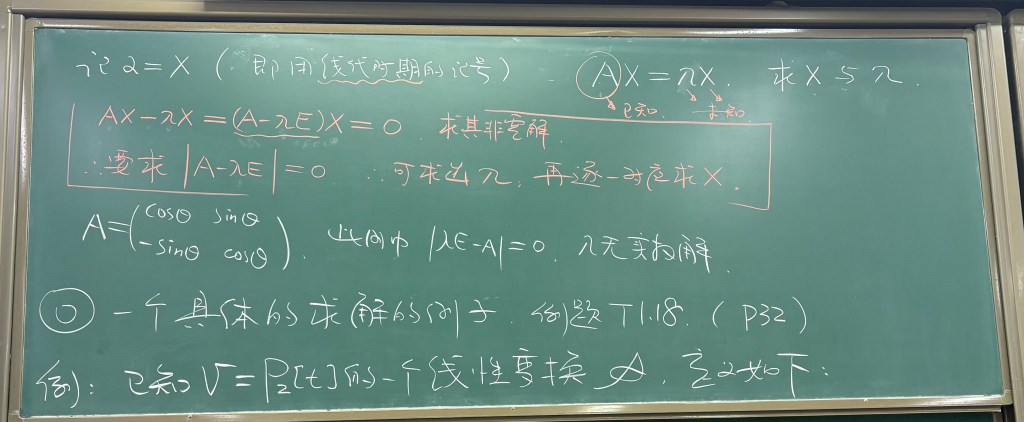 记α=X (即用线代时期的记号) AX=λX. 求X与λ.
已知. 未知
AX-λX=(A-λE)X=0 求其非零解.
∴要求 |A-λE|=0 ∴可求出λ, 再逐一对应求X.
A=(cosθ sinθ
-sinθ cosθ). 此时由 |λE-A|=0. λ无实数解.
⊙ 一个具体的求解的例子. 例题T1.18. (P32)
例: 已知V=P₂[t]的一个线性变换𝒜, 定义如下: